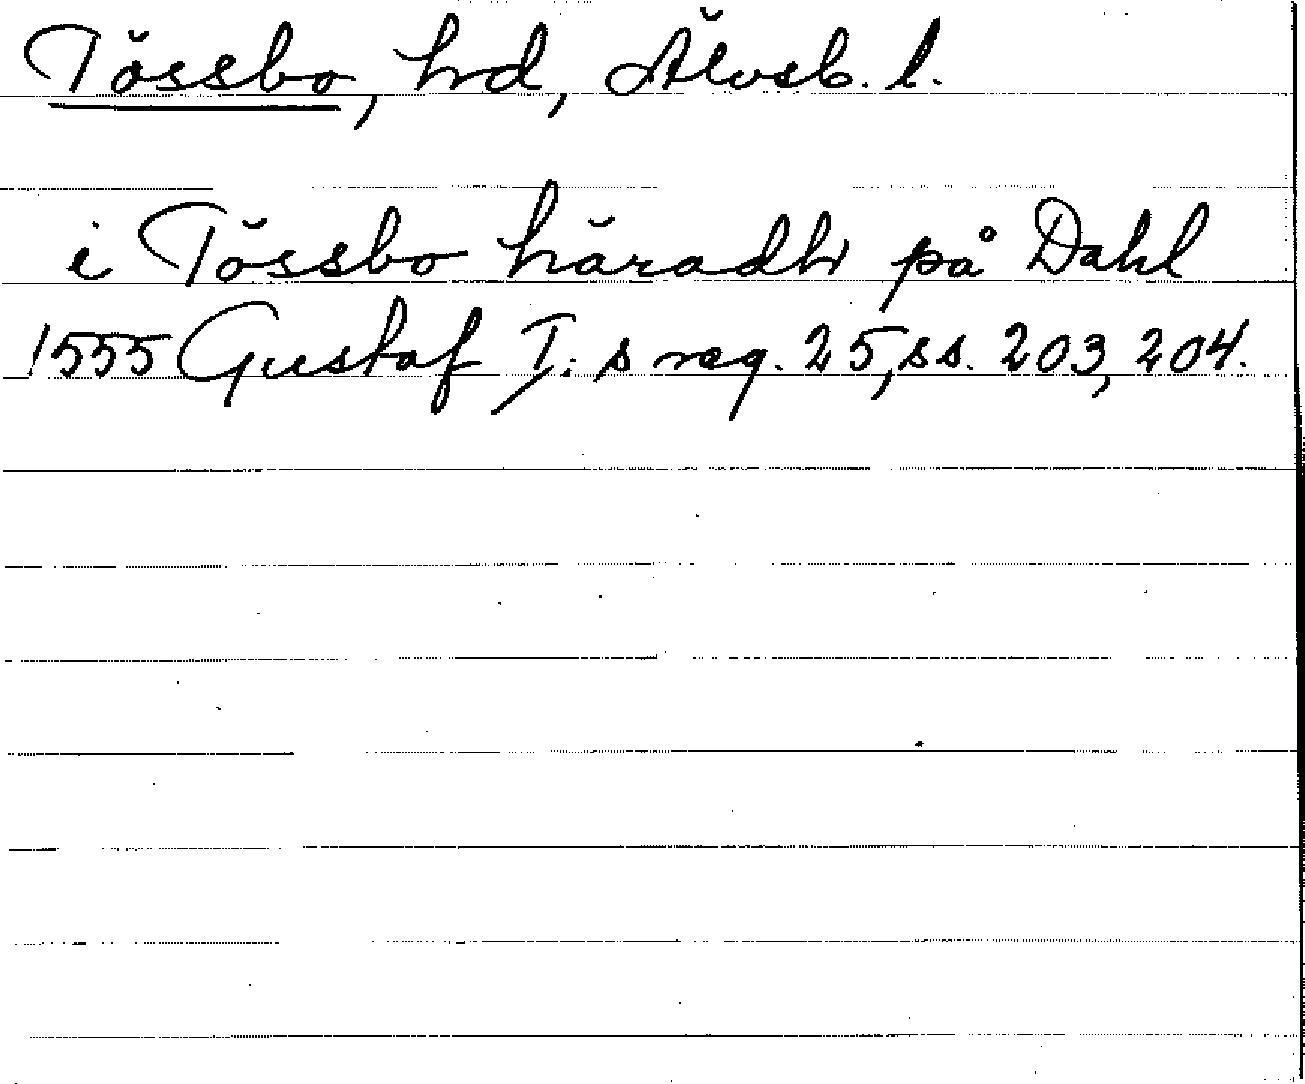 Tössbo, hd, Älvsb. l.
i Tössbo häradh på Dahl
1555 Gustaf I:s reg. 25, ss. 203, 204.